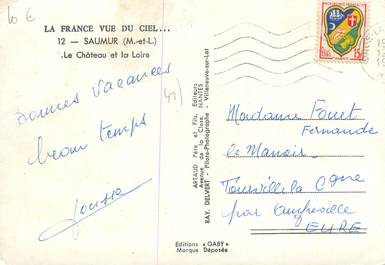 10 €
LA FRANCE VUE DU CIEL...
12 — SAUMUR (M.-et-L.)
Le Château et la Loire
Bonnes vacances
beau temps
49
ARTAUD Père et Fils, Éditeurs
Avenue de la Close, NANTES
RAY. DELVERT - Pilote-Photographe - Villeneuve-sur-Lot
Editions "GABY"
Marque Déposée
Madame
Fernande
le Manoir
Tourville la
par
EURE